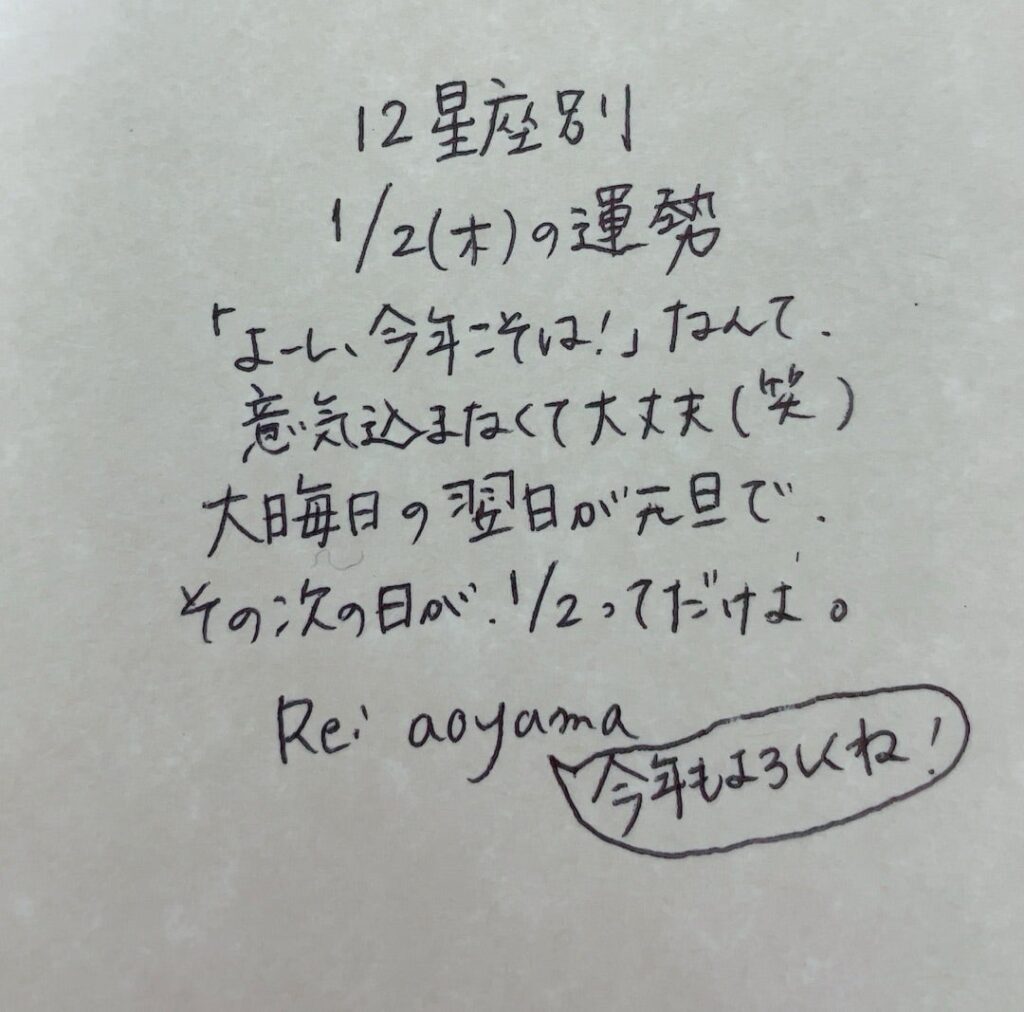 12星座別
1/2(木)の運勢
「よーし、今年こそは!」なんて、
意気込まなくて大丈夫(笑)
大晦日の翌日が元旦で、
その次の日が、1/2ってだけよ。
Rei aoyama
今年もよろしくね!